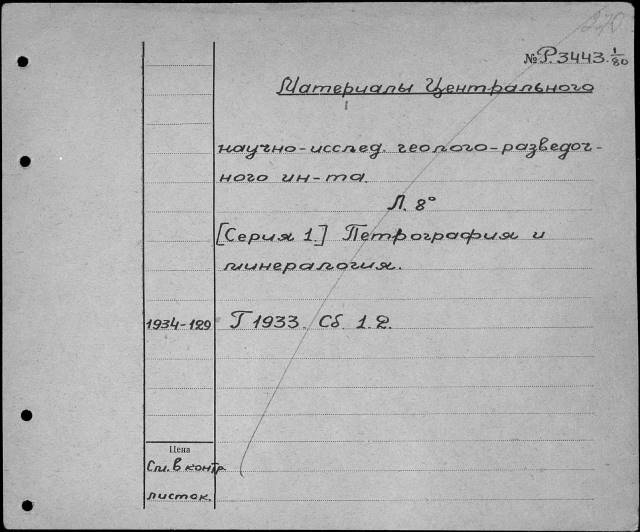 270
№ Р.3443. 1/80
Материалы Центрального
научно-исслед. геолого-разведоч-
ного ин-та.
Л. 8°
[Серия 1.] Петрография и
минералогия.
1934-129 Г 1933. Сб. 1.2.
Цена
См. в контр.
листок.